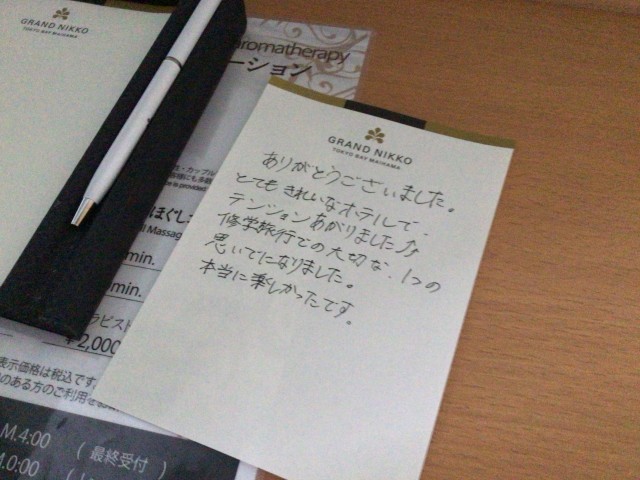 GRAND NIKKO
TOKYO BAY MAIHAMA
aromatherapy
ーション
GRAND NIKKO
TOKYO BAY MAIHAMA
ありがとうございました。
とてもきれいなホテルで、
テンションあがりました♪
修学旅行での大切な、1つの
思いでになりました。
本当に楽しかったです。
・カップル
ほぐし
Massage
min.
min.
ラピスト
¥2,000
表示価格は税込です
のある方のご利用をお
M.4:00 ( 最終受付 )
M.0:00